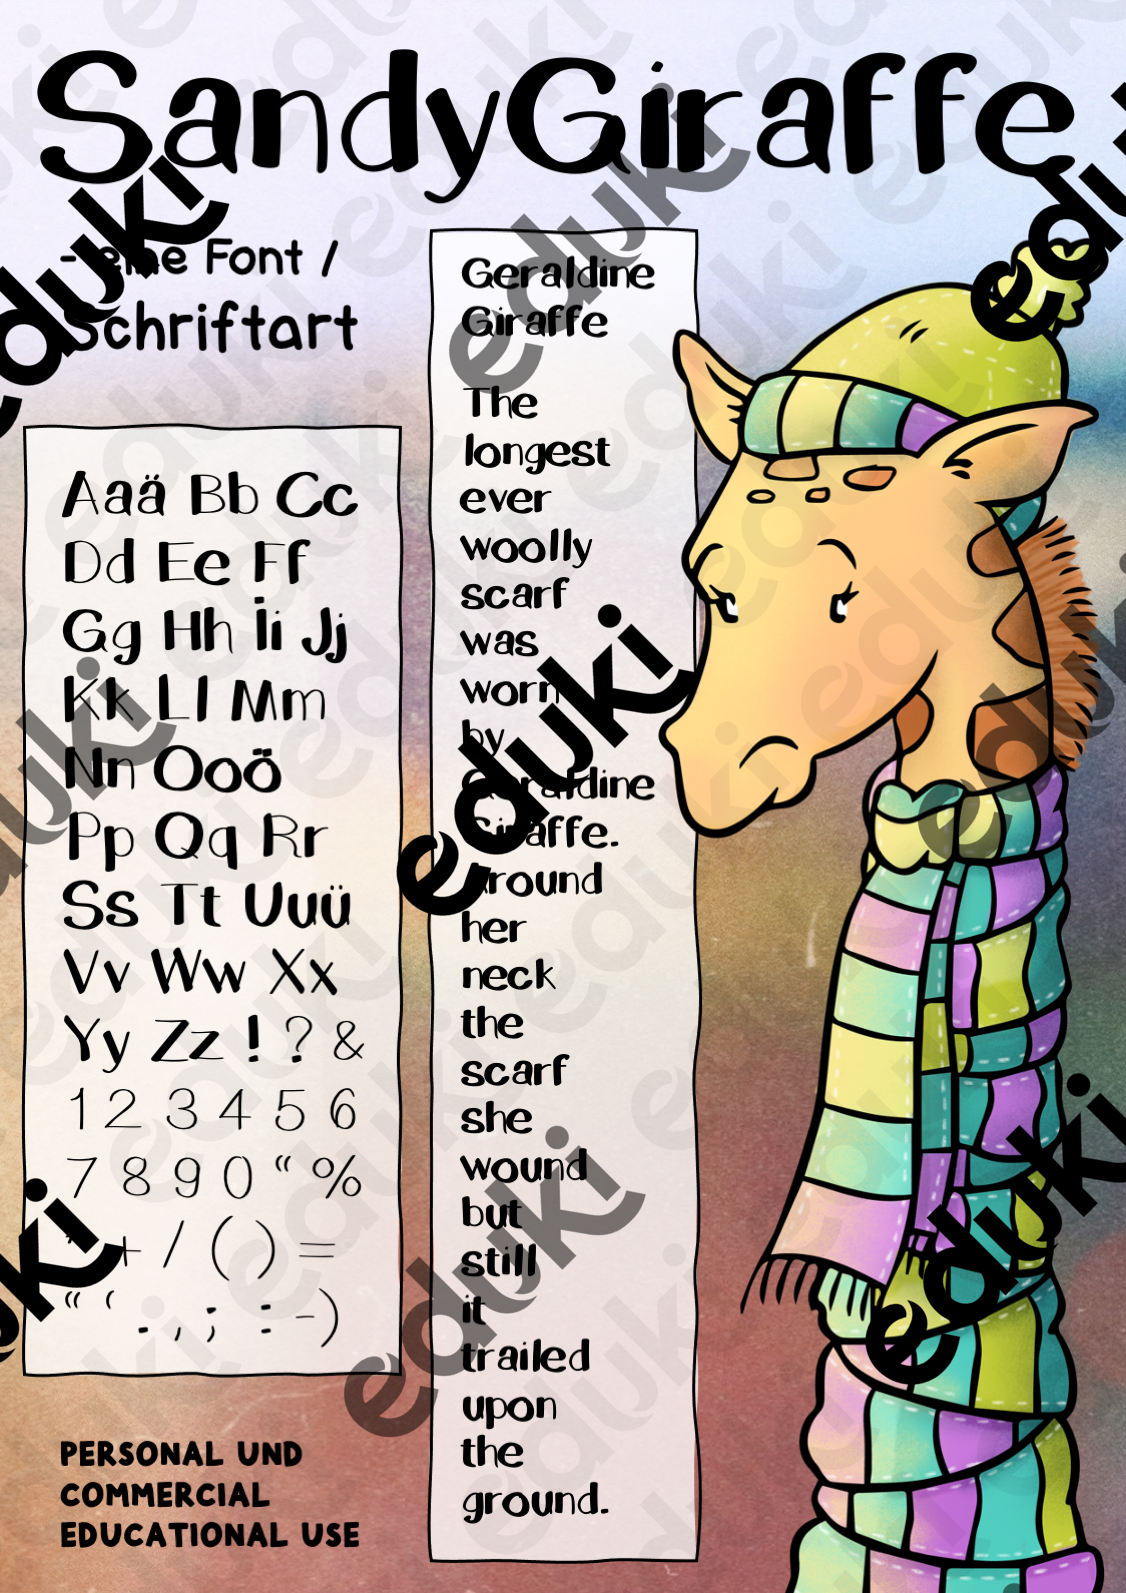 SandyGiraffe
- eine Font /
Schriftart
Aaä Bb Cc
Dd Ee Ff
Gg Hh Ii Jj
Kk Ll Mm
Nn Ooö
Pp Qq Rr
Ss Tt Uuü
Vv Ww Xx
Yy Zz ! ? &
1 2 3 4 5 6
7 8 9 0 “ %
+ / ( ) =
“ ‘ . , ; : -)
PERSONAL UND
COMMERCIAL
EDUCATIONAL USE
Geraldine
Giraffe
The
longest
ever
woolly
scarf
was
worn
by
Geraldine
Giraffe.
Around
her
neck
the
scarf
she
wound
but
still
it
trailed
upon
the
ground.
eduki
eduki
eduki
eduki
eduki
eduki
eduki
eduki